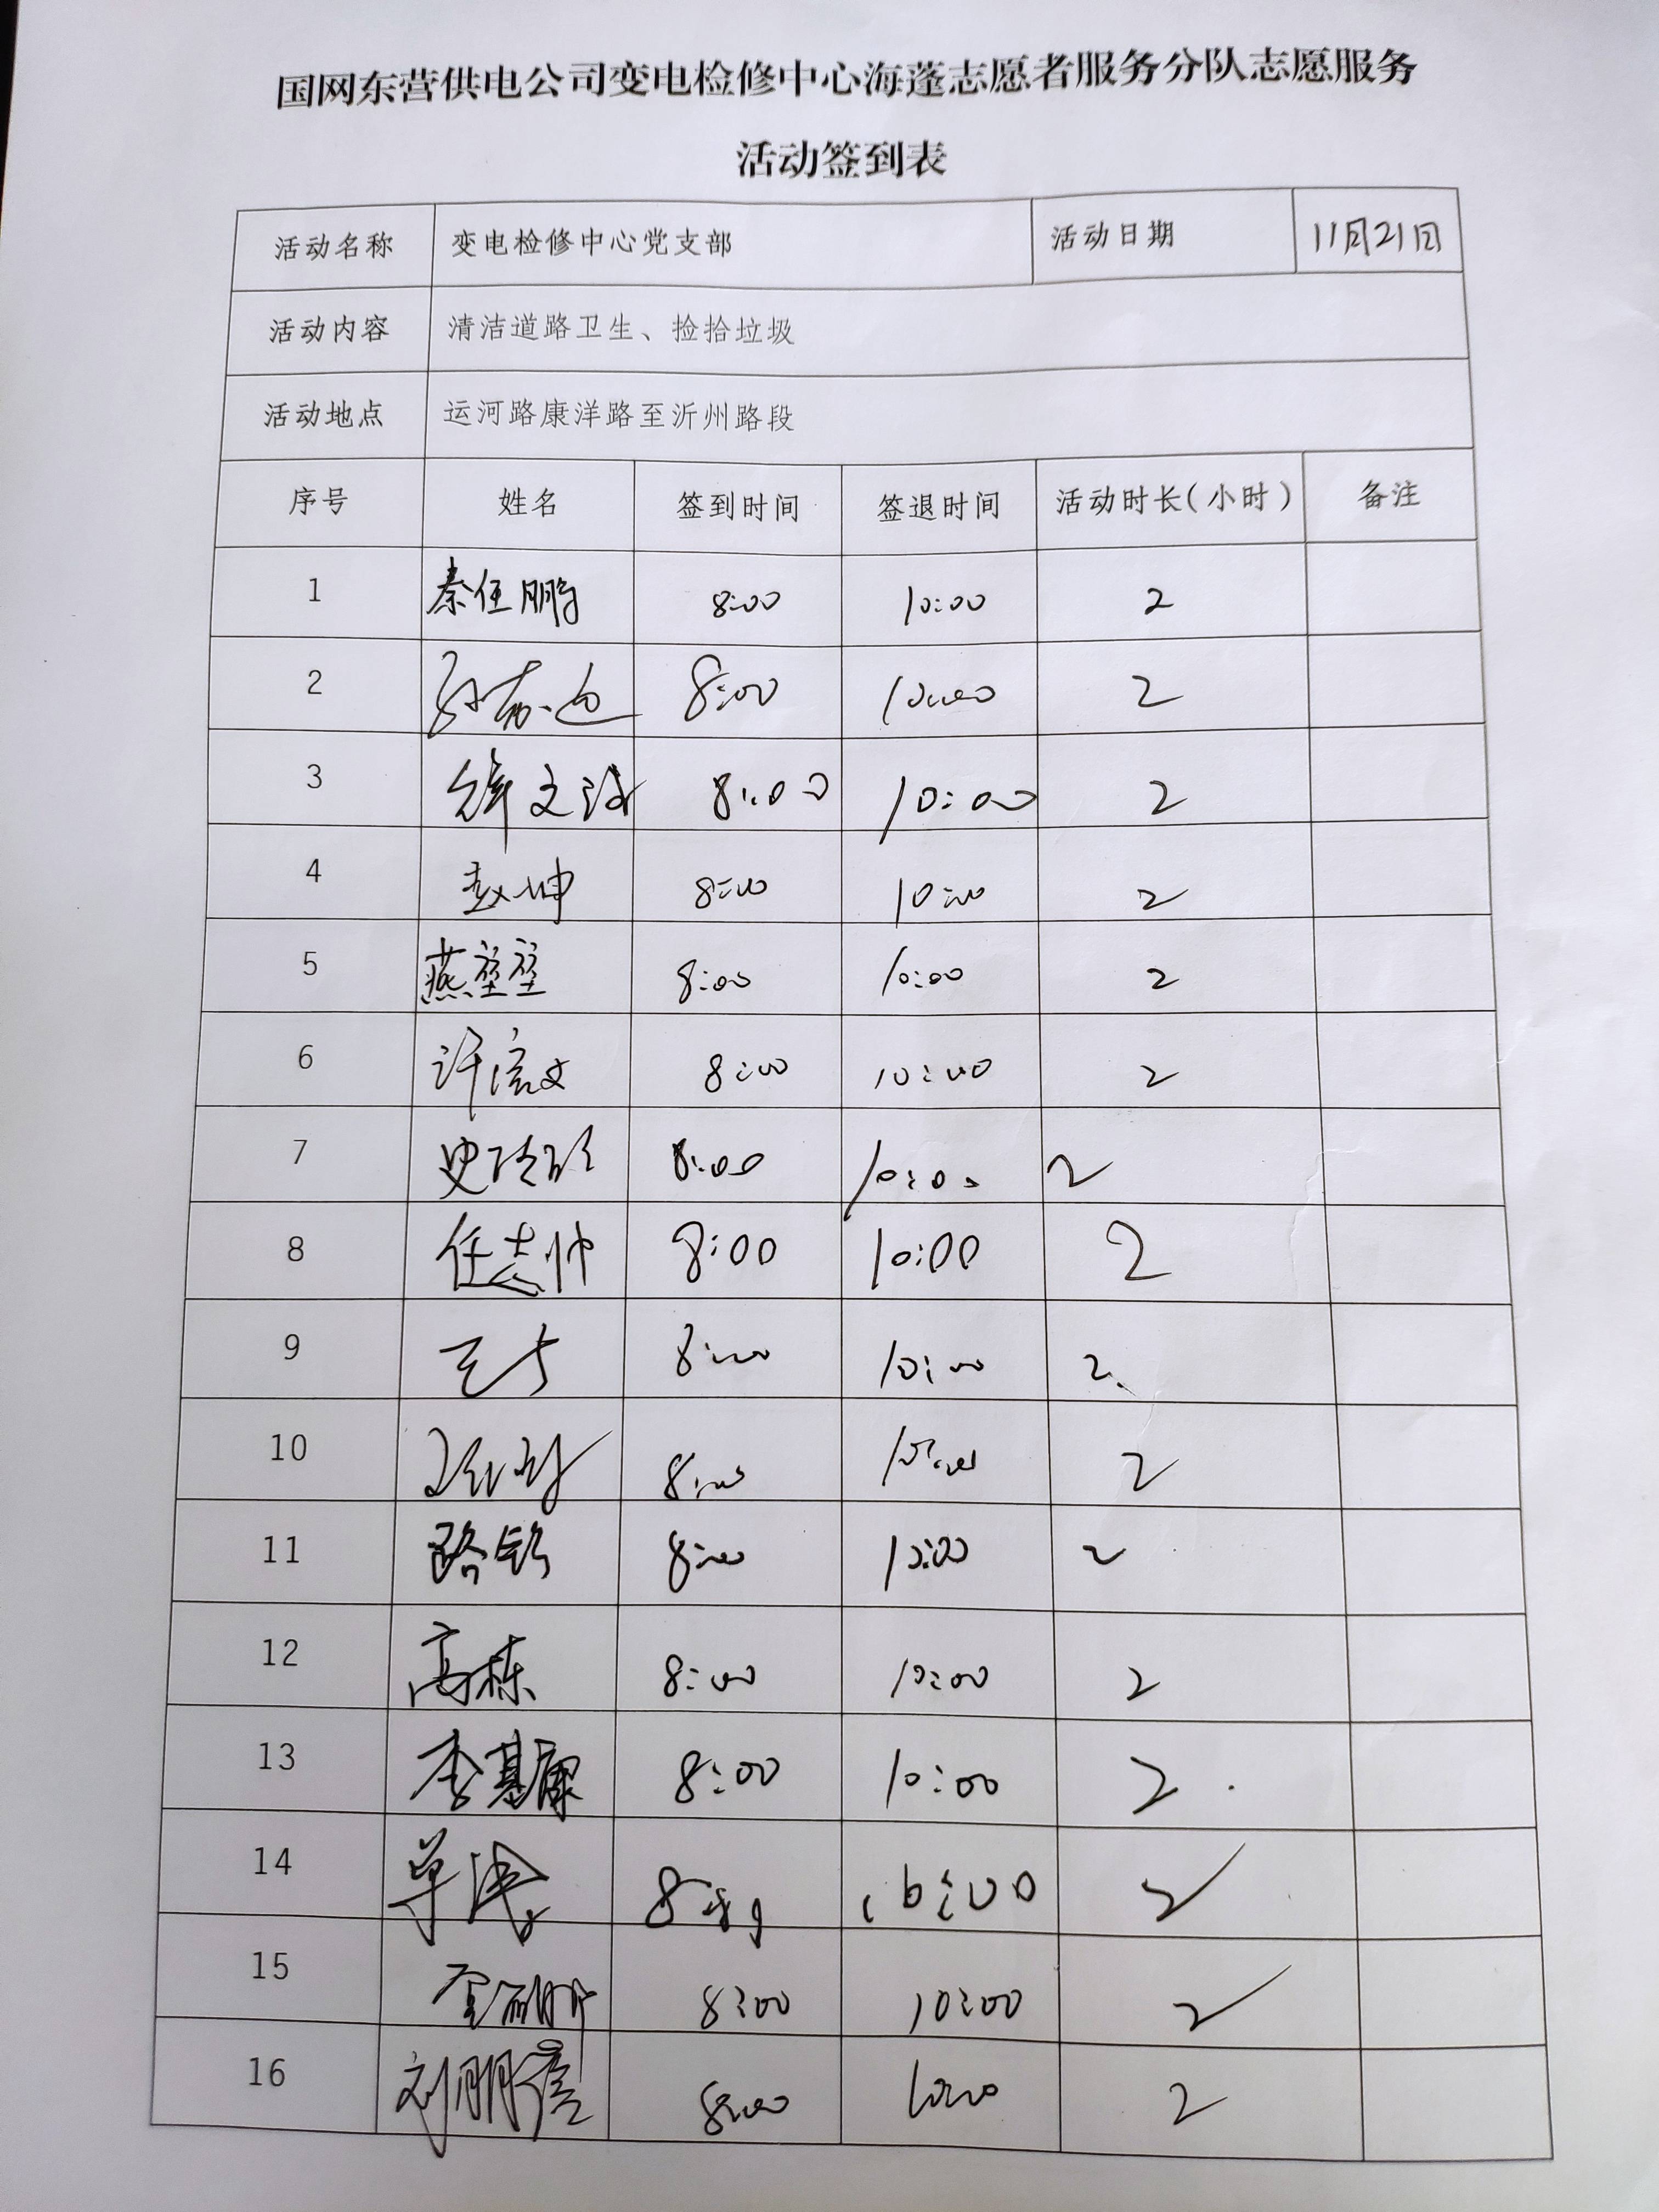 国网东营供电公司变电检修中心海蓬志愿者服务分队志愿服务
活动签到表
活动名称 变电检修中心党支部 活动日期 11月21日
活动内容 清洁道路卫生、捡拾垃圾
活动地点 运河路康洋路至沂州路段
序号 姓名 签到时间 签退时间 活动时长(小时) 备注
1 秦任鹏 8:00 10:00 2
2 8:00 10:00 2
3 8:00 10:00 2
4 赵坤 8:00 10:00 2
5 燕莹莹 8:00 10:00 2
6 8:00 10:00 2
7 8:00 10:00 2
8 任志帅 8:00 10:00 2
9 8:00 10:00 2.
10 8:00 10:00 2
11 路钧 8:00 10:00 2
12 高栋 8:00 10:00 2
13 李基康 8:00 10:00 2
14 10:00 2
15 8:00 10:00 2
16 8:00 10:00 2